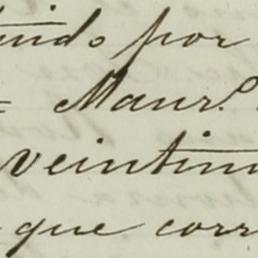 tuido por
= Manr.o
veintinu
que corr